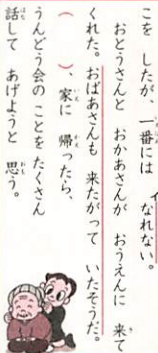 こを したが、一番には ィ なれない。
おとうさんと おかあさんが おうえんに 来て
くれた。おばあさんも 来たがって いたそうだ。
( )、家に 帰ったら、
うんどう会の ことを たくさん
話して あげようと 思う。